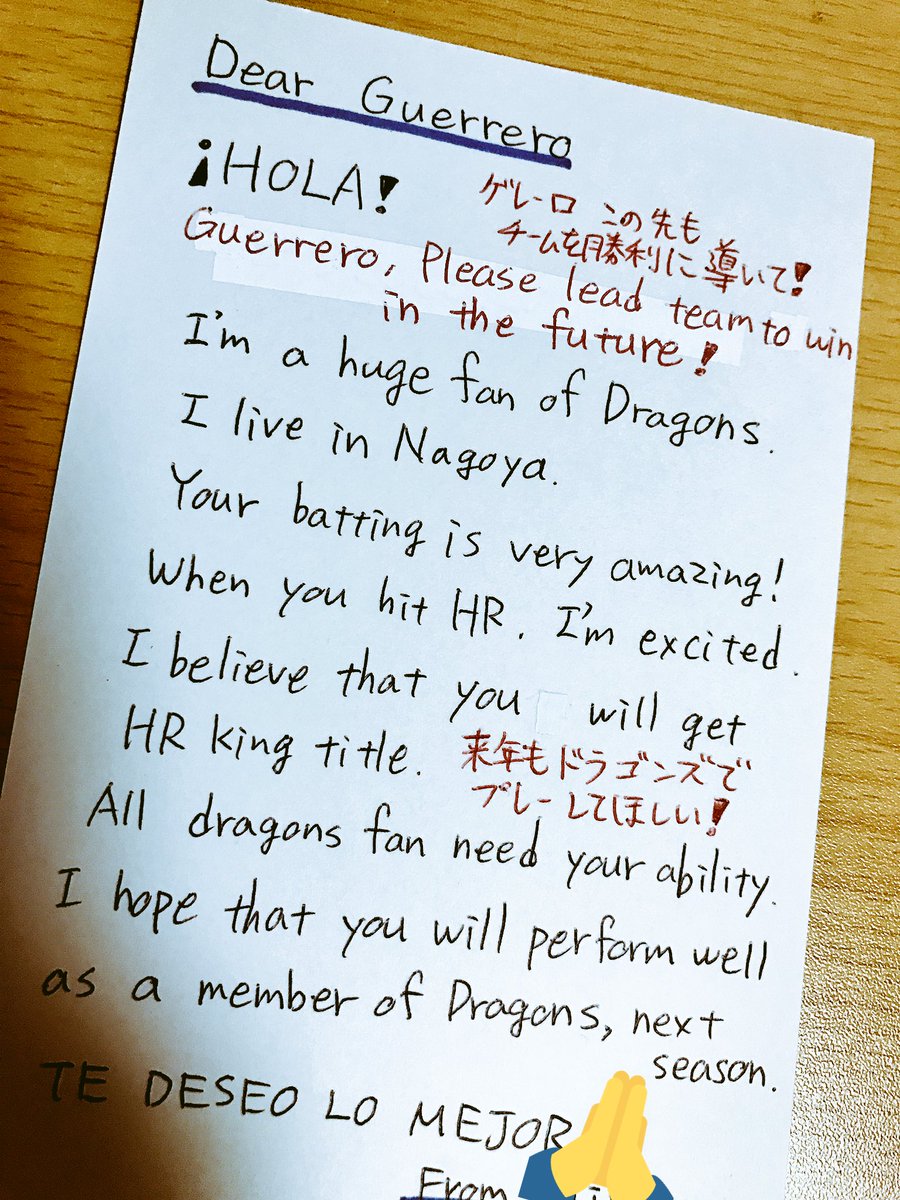 Dear Guerrero
¡HOLA!
ゲレーロ この先も
チームを勝利に導いて!
Guerrero, Please lead team to win
in the future!
I'm a huge fan of Dragons.
I live in Nagoya.
Your batting is very amazing!
When you hit HR. I'm excited.
I believe that you will get
HR king title.
来年もドラゴンズで
プレーしてほしい!
All dragons fan need your ability.
I hope that you will perform well
as a member of Dragons, next
season.
TE DESEO LO MEJOR
From